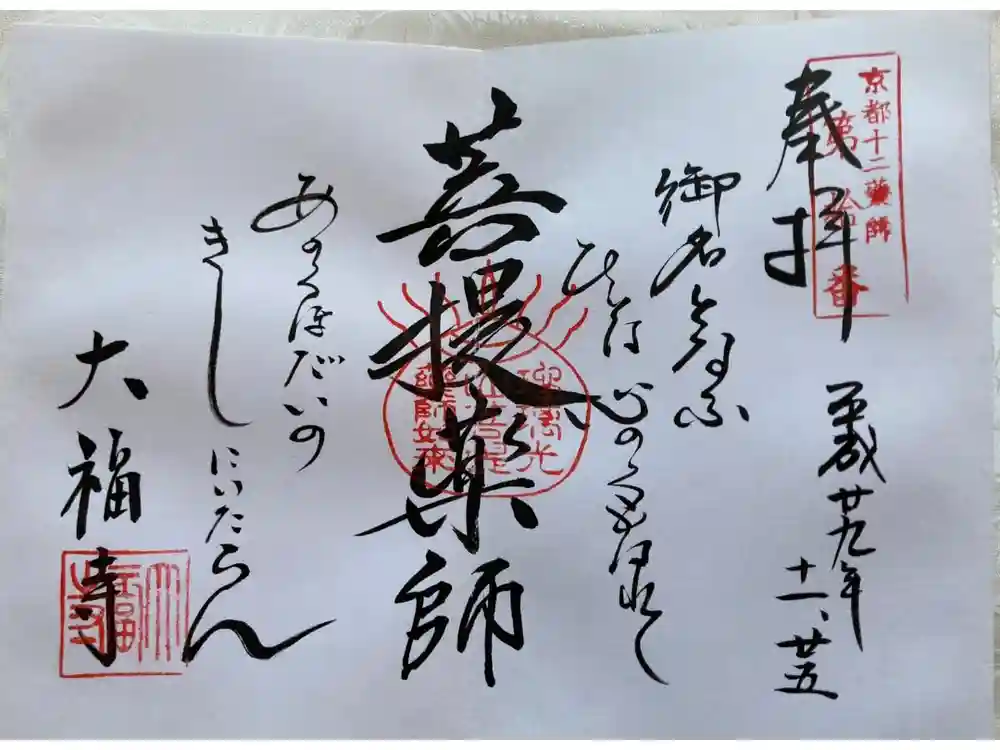 京都十二藥師
第 番
奉拝
平成廿九年
十一、廿五
御名となふ
ひとは心のくもはれて
菩提薬師
瑠璃光
菩提
藥師如來
あのくぼだいの
きしにいたらん
大福寺